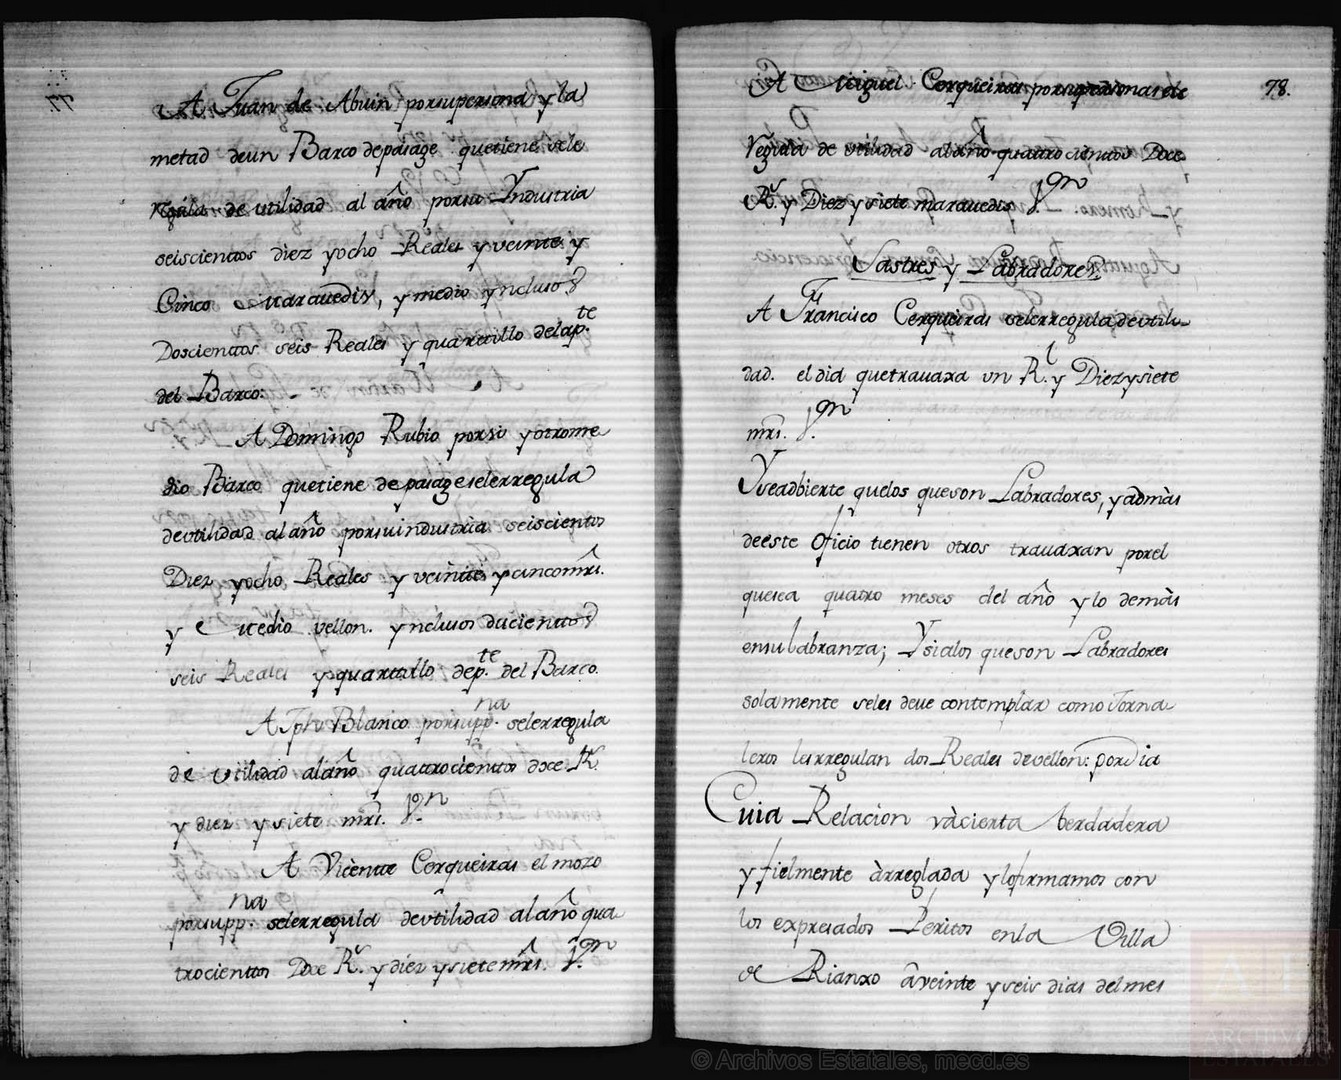 A Juan de Abuin por su persona y la
metad de un Barco de pasage que tiene se le
regula de utilidad al año por su Yndustria
seiscientos diez y ocho Reales y veinte y
Cinco Maravedis, y medio ynclusos
Doscientos seis Reales y quartillo de la p.te
del Barco.
A Domingo Rubio por si y otro me
dio Barco que tiene de pasage se le rregula
de utilidad al año por su industria seiscientos
Diez y ocho Reales y veinte y cinco mrs.
y Medio vellon. ynclusos ducientos
seis Reales y quartillo de p.te del Barco.
A Jph Blanco por su pp.na se le rregula
de utilidad al año quatrocientos doce Rs.
y diez y siete mrs. V.on
A Vicente Cerqueiras el mozo
por su pp.na se le rregula de utilidad al año qua
trocientos Doce Rs. y diez y siete mrs. V.on
78.
A Miguel Cerqueiras por su persona se le
Regula de utilidad al año quatrocientos Doce
Rs. y Diez y siete maravedis V.on
Sastres y Labradores
A Francisco Cerqueiras se le rregula de utili-
dad. el dia que travaxa un R.l y Diez y siete
mrs. V.on
Y se adbierte que los que son Labradores, y admàs
de este Oficio tienen otros travaxan por el
que sea quatro meses del año y lo demàs
en su labranza; Y si a los que son Labradores
solamente se les deve contemplar como Jorna
leros les rregulan dos Reales de vellon: por dia
Cuia Relacion và cierta berdadera
y fielmente àrreglada y lo firmamos con
los expresados Peritos en la Villa
de Rianxo à veinte y seis dias del mes
© Archivos Estatales, mecd.es
ARCHIVOS
ESTATALES